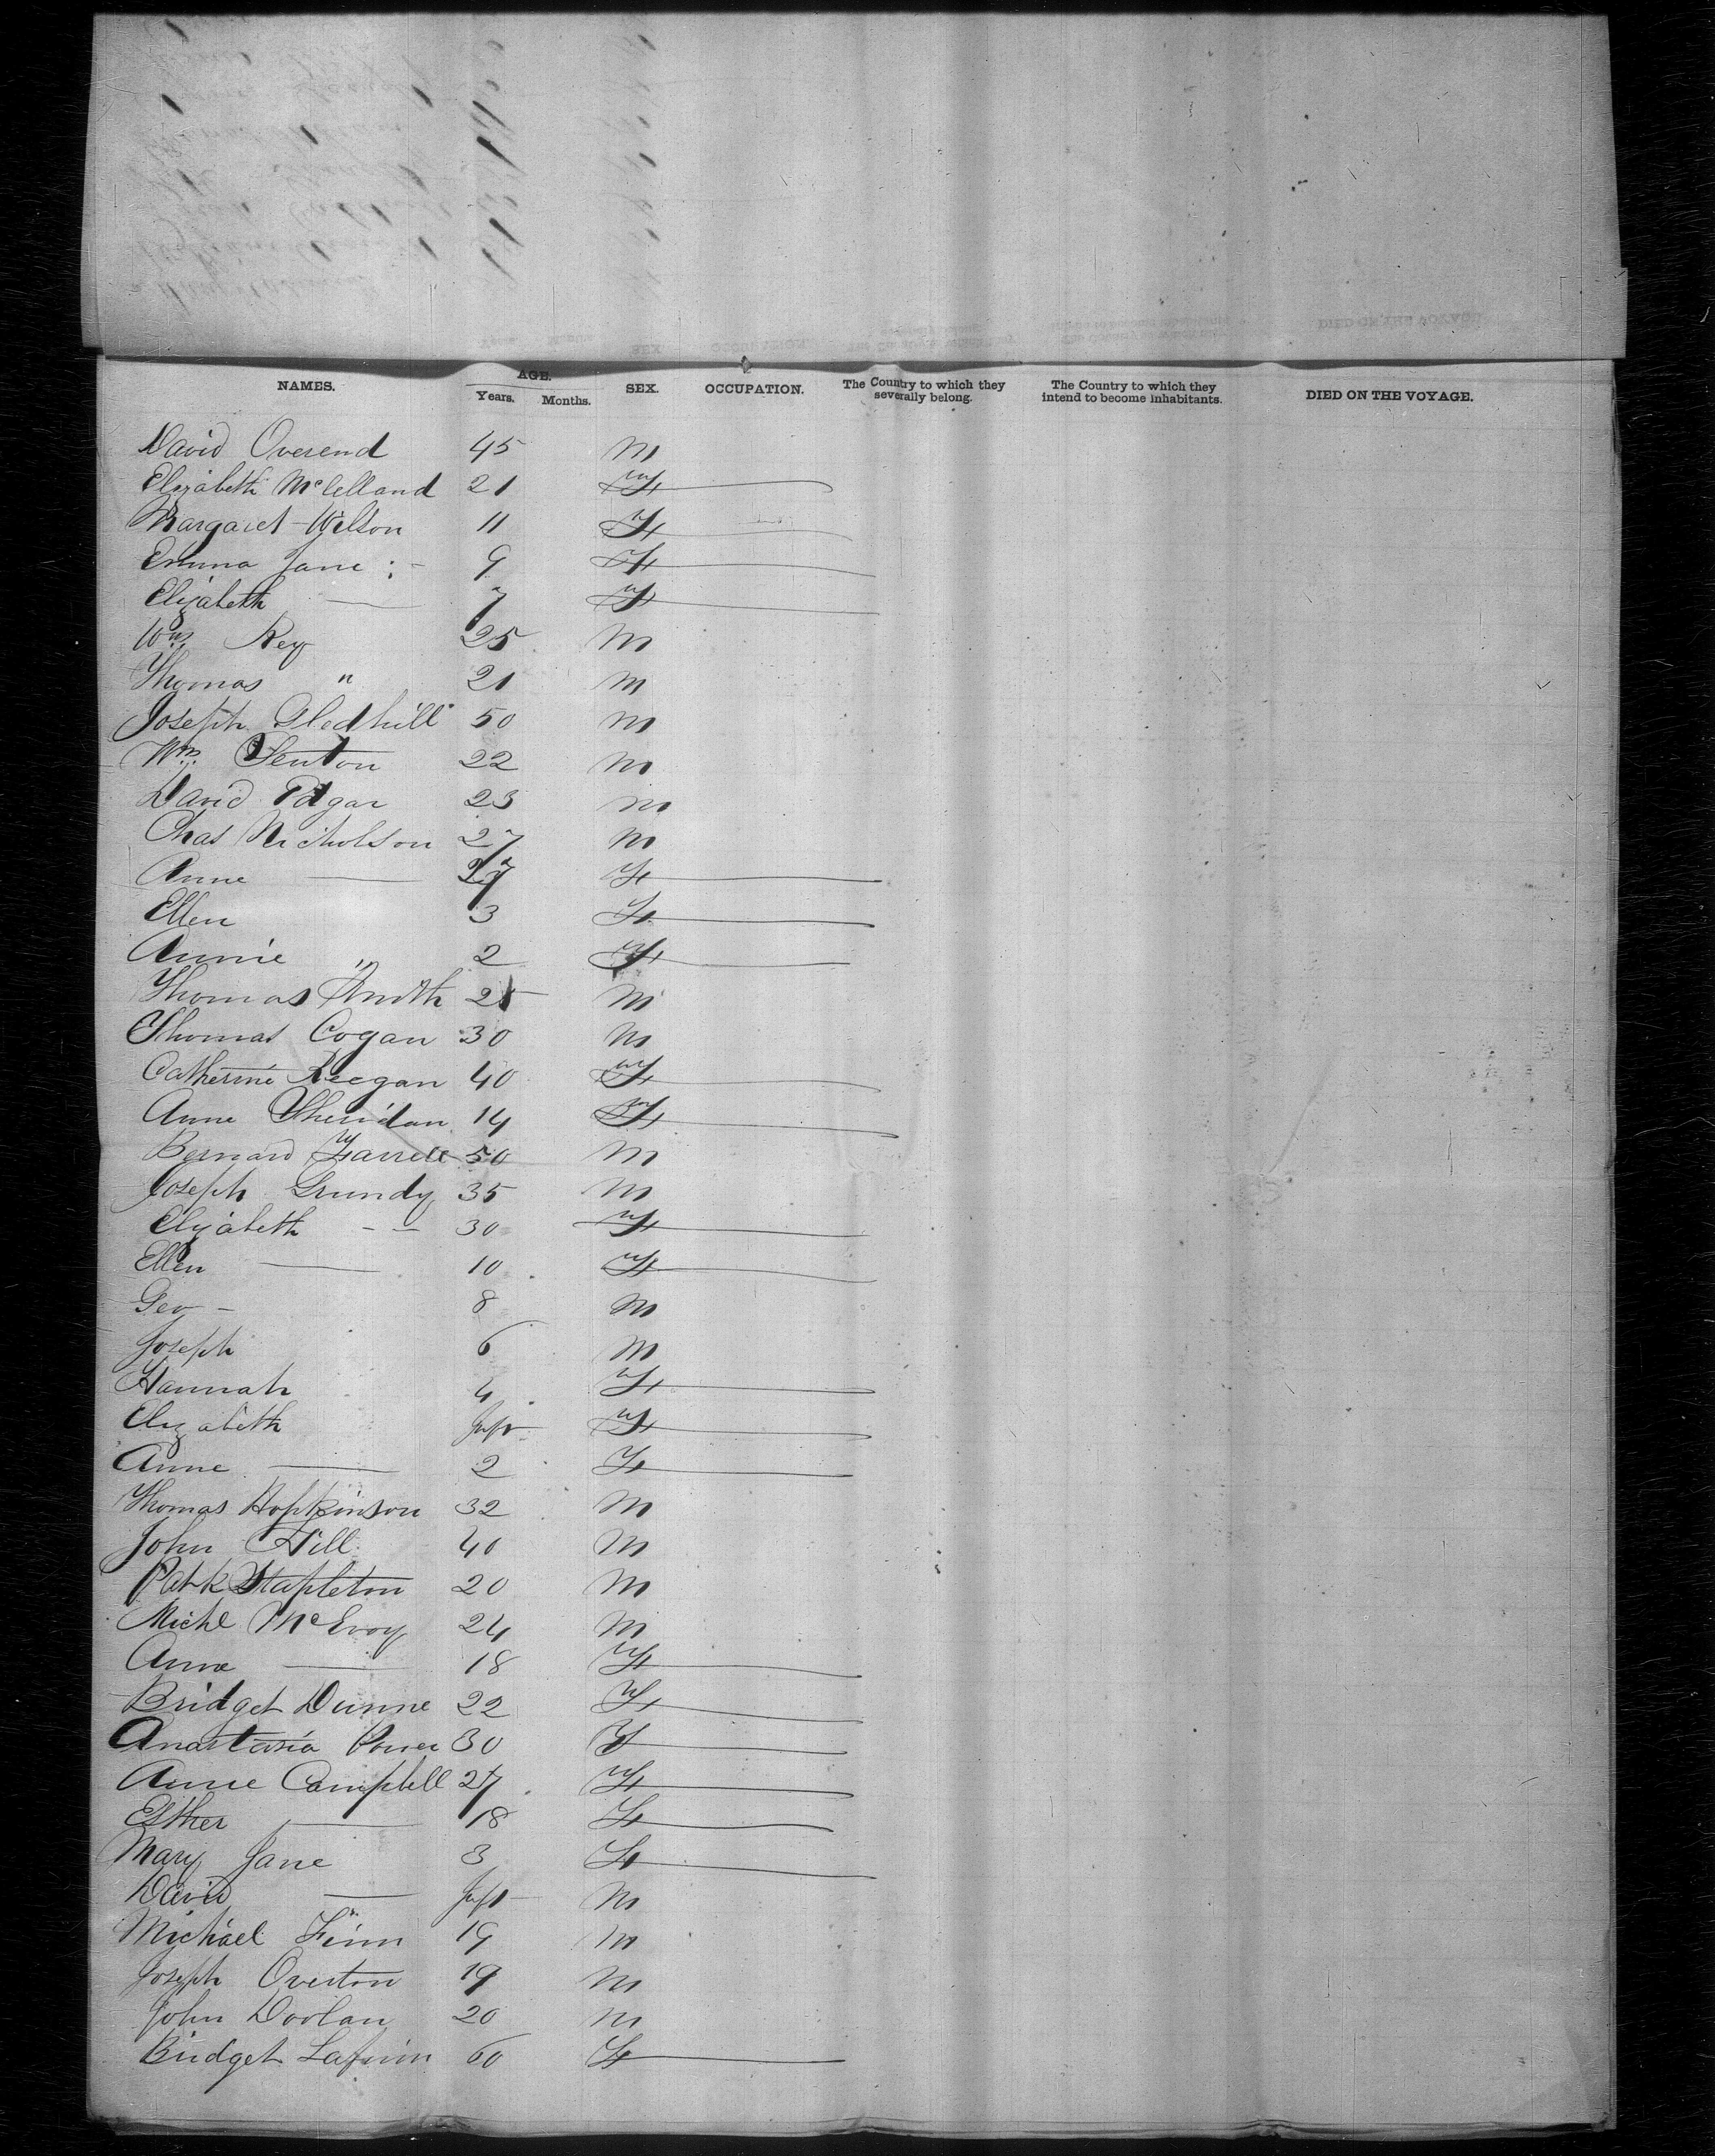 NAMES. AGE. Years. Months. SEX. OCCUPATION. The Country to which they severally belong. The Country to which they intend to become inhabitants. DIED ON THE VOYAGE.
David Overend 45 M
Elizabeth McClelland 21 F
Margaret Wilson 11 F
Emma Jane :- 9 F
Elizabeth — 7 F
Wm Rey 25 M
Thomas " 21 M
Joseph Gledhill 50 M
Wm. Fenton 22 M
David Edgar 23 M
Chas Nicholson 27 M
Anne — 27 F
Ellen 3 F
Annie " 2 F
Thomas Smith 25 M
Thomas Cogan 30 M
Catherine Keegan 40 F
Anne Sheridan 14 F
Bernard Farrell 50 M
Joseph Grundy 35 M
Elizabeth - - 30 F
Ellen — 10 F
Geo - 8 M
Joseph 6 M
Hannah 4 F
Elizabeth Inft F
Anne — 2 F
Thomas Hopkinson 32 M
John Hill 40 M
Patk Stapleton 20 M
Michl McEvoy 24 M
Anne — 18 F
Bridget Dunne 22 F
Anastasia Power 30 F
Anne Campbell 27 F
Esther — 18 F
Mary Jane 3 F
David — Inft M
Michael Finn 19 M
Joseph Overton 19 M
John Doolan 20 M
Bridget 60 F